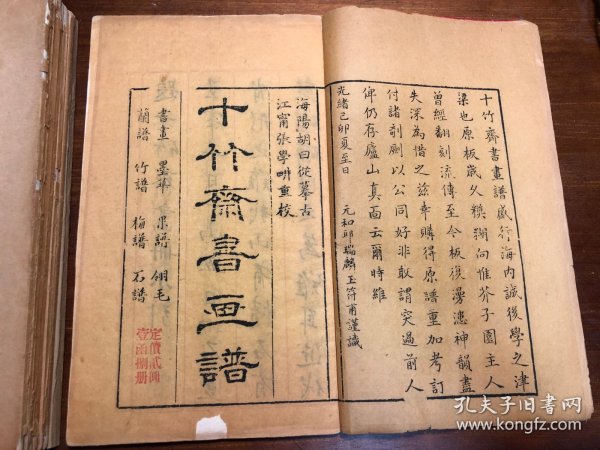 十竹齋書畫譜盛行海內誠後學之津
梁也原板歲久糢糊向惟芥子園主人
曾經翻刻流傳至今板復漫漶神韻盡
失深為惜之茲幸購得原譜重加考訂
付諸剞劂以公同好非敢謂突過前人
俾仍存廬山真面云爾時維
光緒己卯夏至日
元和邱瑞麟玉符甫謹識
海陽胡曰從摹古
江甯張學畊重校
十竹齋書畫譜
書畫 墨華 果譜 翎毛
蘭譜 竹譜 梅譜 石譜
定價貳圓
壹函捌册
孔夫子旧书网
www.kongfz.com